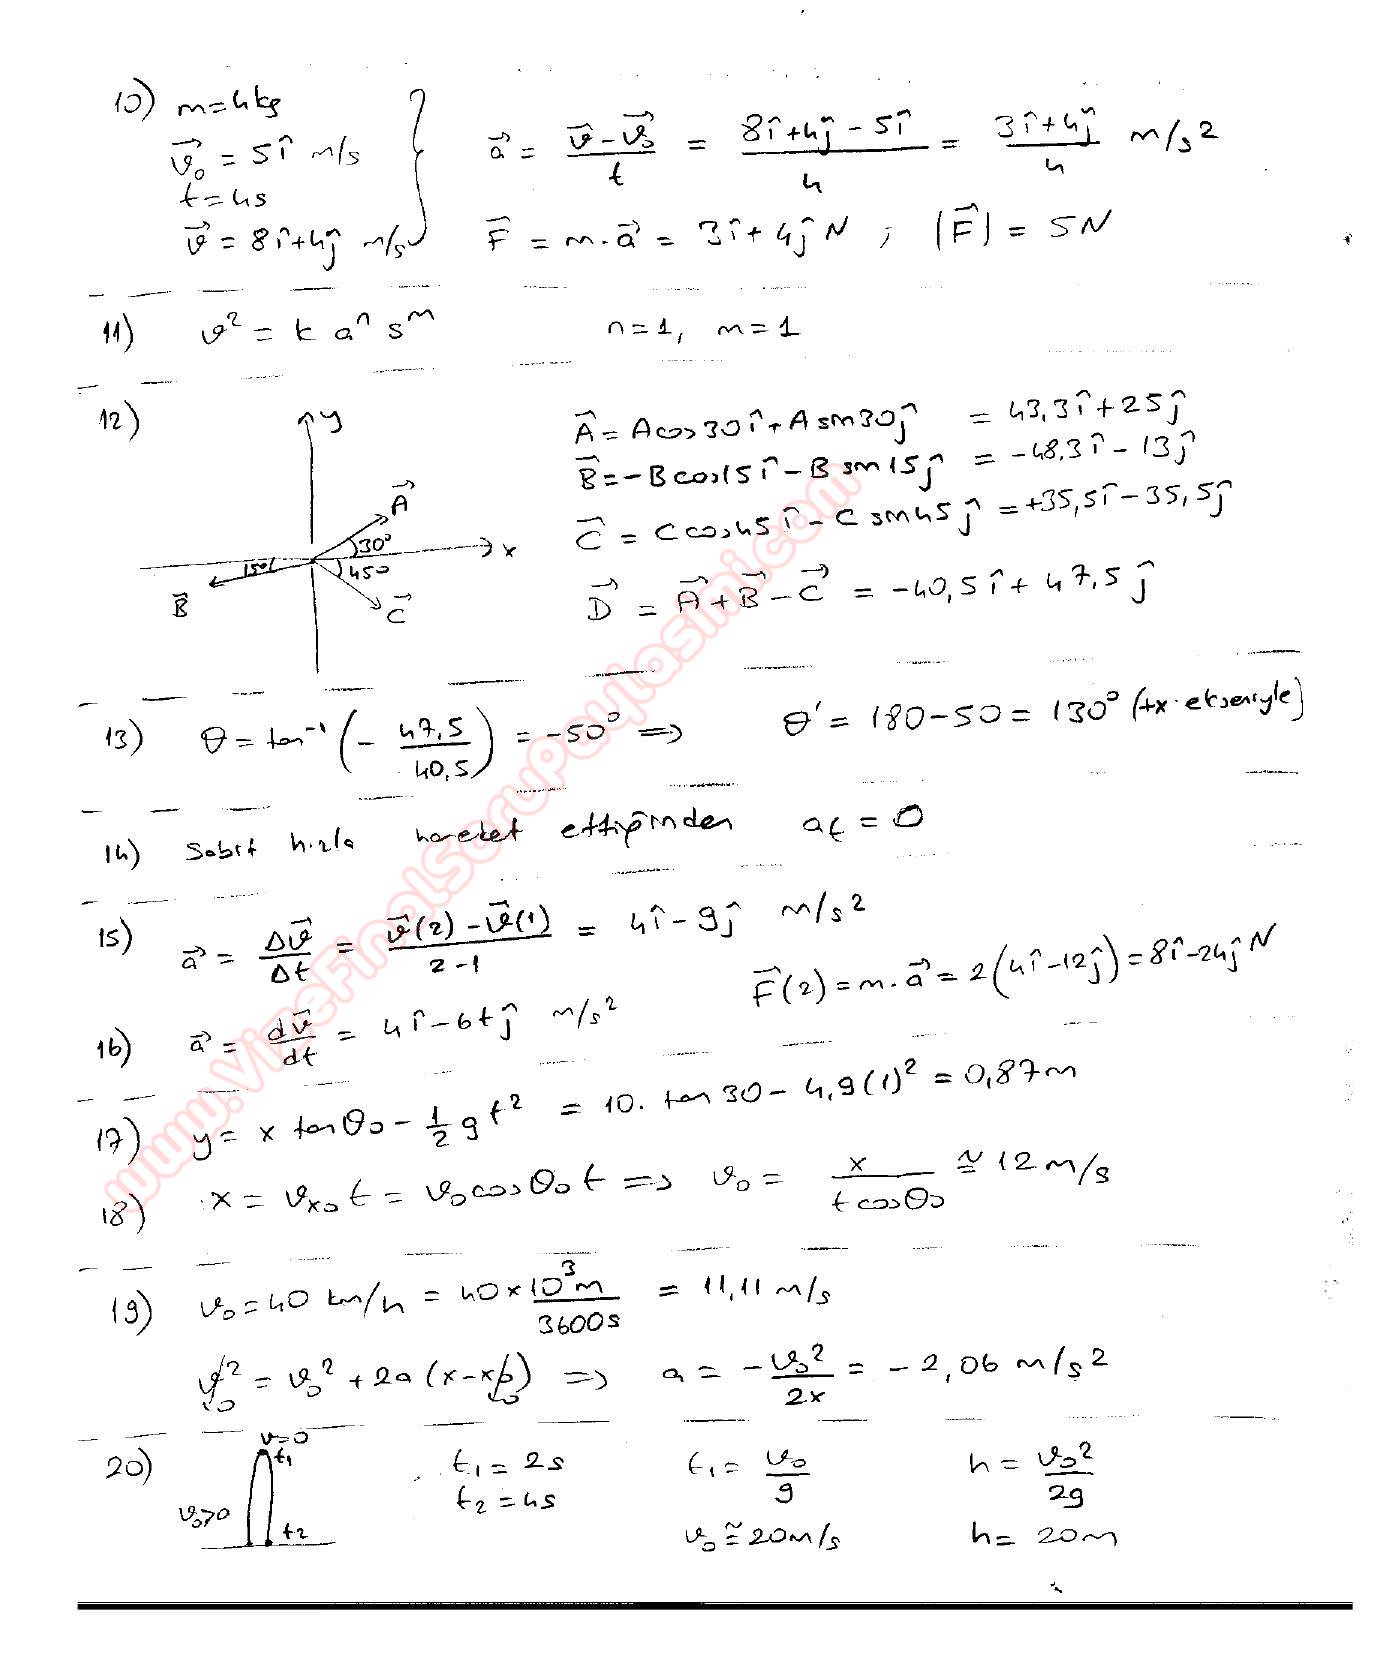 10) m=4kg
v⃗₀ = 5î m/s
t=4s
v⃗ = 8î+4ĵ m/s
a⃗ = (v⃗-v⃗₀)/t = (8î+4ĵ-5î)/4 = (3î+4ĵ)/4 m/s²
F⃗ = m.a⃗ = 3î+4ĵ N ; |F⃗| = 5N
11) v² = k aⁿ sᵐ n=1, m=1
12) y
A⃗
30°
x
15°
45°
B⃗
C⃗
A⃗ = Acos30î+Asin30ĵ = 43,3î+25ĵ
B⃗ = -Bcos15î-Bsin15ĵ = -48,3î-13ĵ
C⃗ = Ccos45î-Csin45ĵ = +35,5î-35,5ĵ
D⃗ = A⃗+B⃗-C⃗ = -40,5î+47,5ĵ
13) θ = tan⁻¹(-47,5/40,5) = -50° => θ' = 180-50 = 130° (+x ekseniyle)
14) Sabit hızla hareket ettiğinden at = 0
15) a⃗ = Δv⃗/Δt = (v⃗(2)-v⃗(1))/(2-1) = 4î-9ĵ m/s²
F⃗(2) = m.a⃗ = 2(4î-12ĵ) = 8î-24ĵ N
16) a⃗ = dv⃗/dt = 4î-6tĵ m/s²
17) y = x tanθ₀ - 1/2 gt² = 10. tan30 - 4,9(1)² = 0,87m
18) x = vₓ₀t = v₀cosθ₀t => v₀ = x/(tcosθ₀) ≅ 12m/s
19) v₀ = 40 km/h = 40×10³m/3600s = 11,11 m/s
v² = v₀² + 2a(x-x₀) => a = -v₀²/2x = -2,06 m/s²
0 0
20) v=0
t₁
v₀>0
t₂
t₁ = 2s t₁ = v₀/g h = v₀²/2g
t₂ = 4s
v₀ ≅ 20m/s h = 20m
www.VizeFinalSoruPaylasimi.com